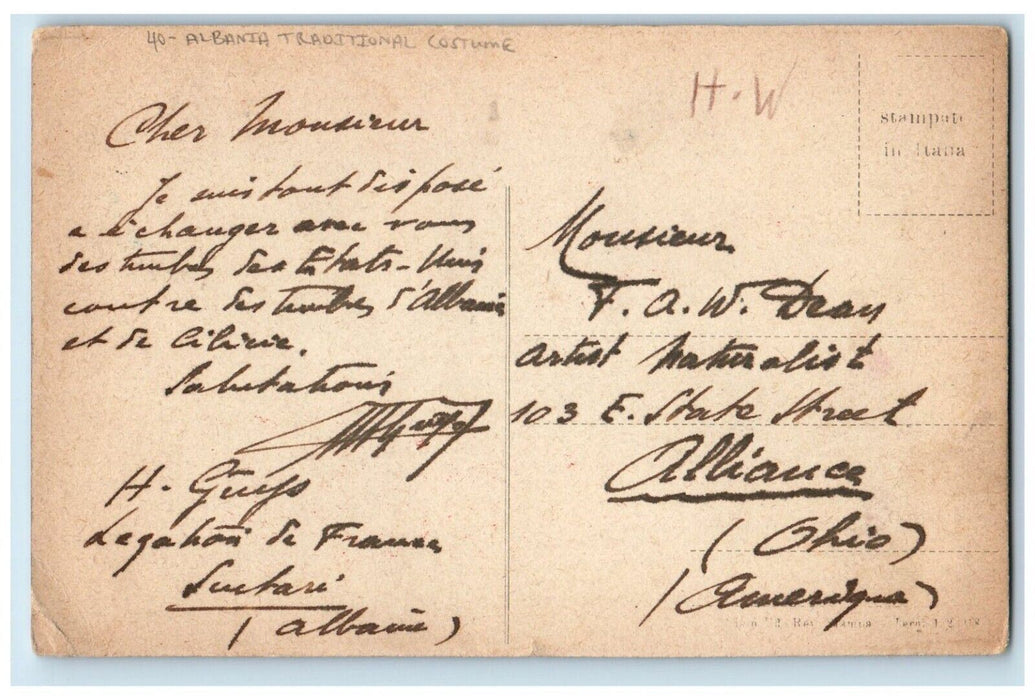 40- ALBANIA TRADITIONAL COSTUME
H.W
stampato
in Italia
Cher Monsieur
Je suis tout disposé
a échanger avec vous
des timbres des Etats-Unis
contre des timbres d'Albanie
et de Cilicie.
Salutations
H. Guys
Legation de France
Scutari
(Albanie)
Monsieur
F. A. W. Dean
Artist Naturalist
103 E. State Street
Alliance
(Ohio)
(Amerique)